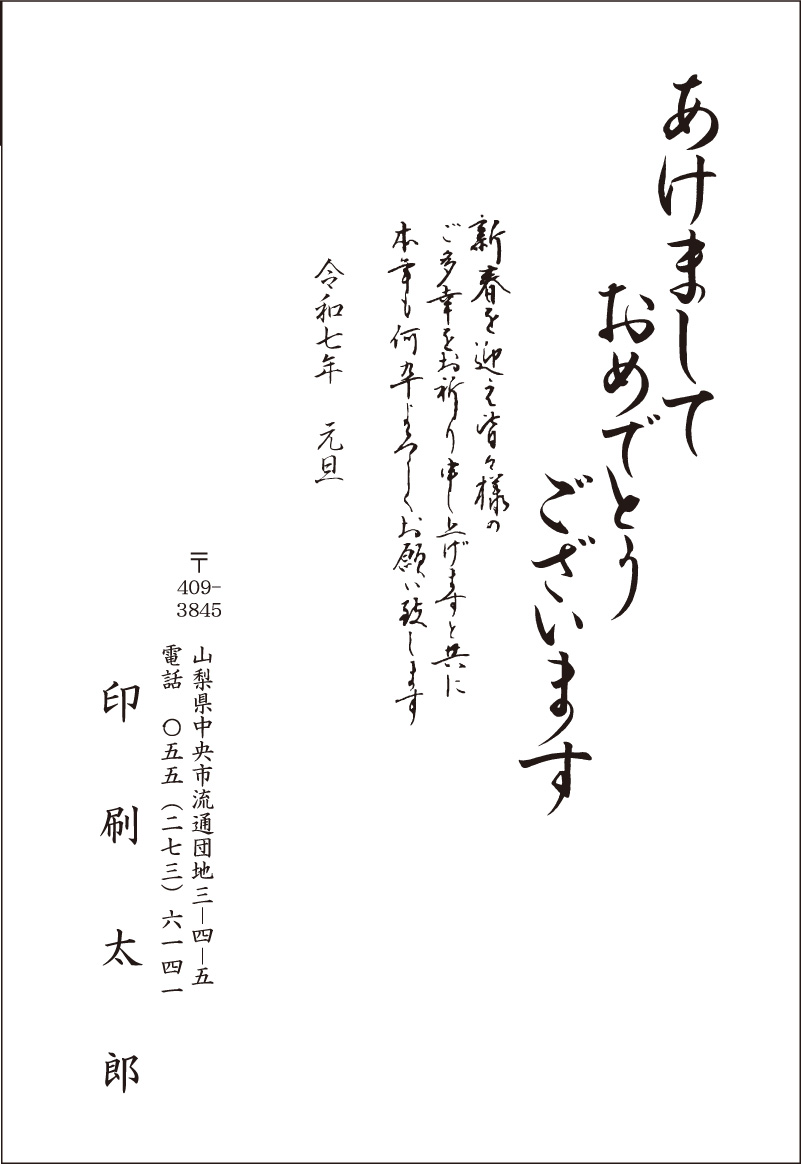 あけまして
おめでとう
ございます
新春を迎え皆々様の
ご多幸をお祈り申し上げますと共に
本年も何卒よろしくお願い致します
令和七年　元旦
〒
409-
3845
山梨県中央市流通団地三―四―五
電話　〇五五（二七三）六一四一
印刷太郎